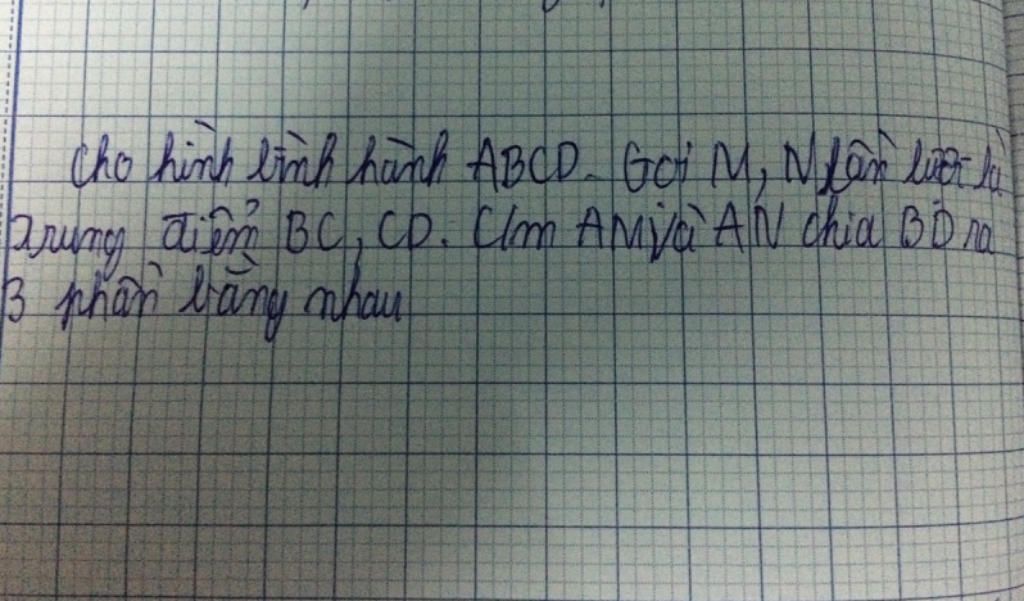 Cho hình bình hành ABCD. Gọi M, N lần lượt là
trung điểm BC, CD. C/m AM và AN chia BD ra
3 phần bằng nhau